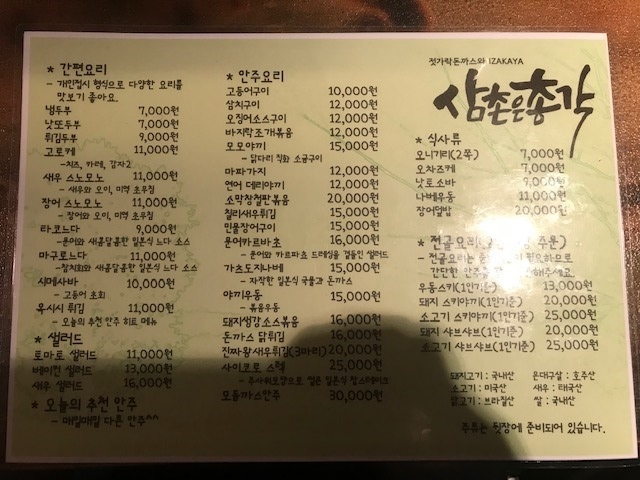 * 간편요리
- 개인접시 형식으로 다양한 요리를
맛보기 좋아요.
냉두부 7,000원
낫또두부 7,000원
튀김두부 9,000원
고로케 11,000원
-치즈, 카레, 감자2
새우 스노모노 11,000원
-새우와 오이, 미역 초무침
장어 스노모노 11,000원
-장어와 오이, 미역 초무침
타코느다 9,000원
-문어와 새콤달콤한 일본식 느다 소스
마구로느다 11,000원
-참치회와 새콤달콤한 일본식 느다 소스
시메사바 10,000원
- 고등어 초회
옥시시 튀김 11,000원
- 오늘의 추천 안주 히트 메뉴
* 샐러드
토마토 샐러드 11,000원
베이컨 샐러드 13,000원
새우 샐러드 16,000원
* 오늘의 추천 안주
- 매일매일 다른 안주^^
* 안주요리
고등어구이 10,000원
삼치구이 12,000원
오징어소스구이 12,000원
바지락조개볶음 12,000원
모모야끼 15,000원
- 닭다리 직화 소금구이
마파가지 12,000원
연어 데리야끼 12,000원
소막창철판볶음 20,000원
칠리새우튀김 15,000원
민물장어구이 15,000원
문어카르파초 16,000원
- 문어와 카르파쵸 드레싱을 곁들인 샐러드
가츠도지나베 15,000원
- 자작한 일본식 국물과 돈까스
야끼우동 15,000원
-볶음우동
돼지생강소스볶음 15,000원
돈까스 닭튀김 15,000원
진짜왕새우튀김(3마리) 20,000원
사이코로 스텍 25,000원
- 주사위모양으로 썰은 일본식 찹스테이크
모듬까스안주 30,000원
젓가락돈까스와 IZAKAYA
삼촌은총각
* 식사류
오니기리(2쪽) 7,000원
오차즈케 7,000원
낫토소바 9,000원
나베우동 11,000원
장어덮밥 20,000원
* 전골요리 주문)
- 전골요리는 필요하므로
간단한 안주 해주세요
우동스키(1인기준) 13,000원
돼지 스키야끼(1인기준) 20,000원
소고기 스키야끼(1인기준) 25,000원
돼지 샤브샤브(1인기준) 20,000원
소고기 샤브샤브(1인기준) 25,000원
돼지고기 : 국내산 은대구살 : 호주산
소고기 : 미국산 새우 : 태국산
닭고기 : 브라질산 쌀 : 국내산
주류는 뒷장에 준비되어 있습니다.